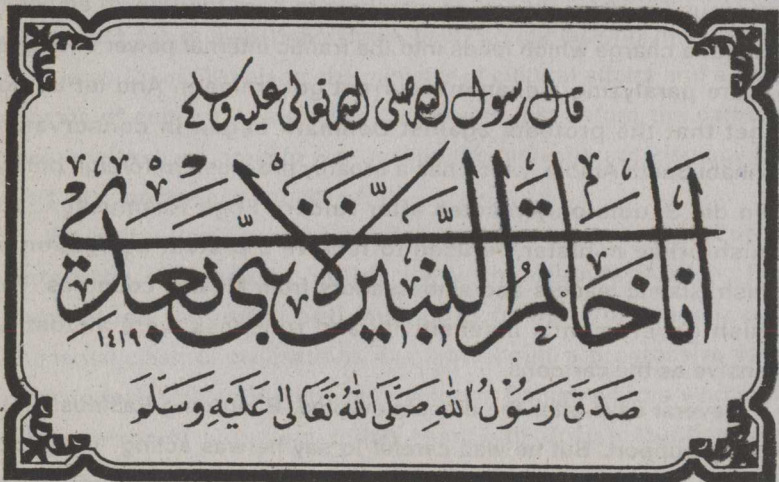 قال رسول الله صلى الله تعالى عليه وسلم
انا خاتم النبيين لا نبي بعدي
١٤١٩
صَدَقَ رَسُوْلُ اللهِ صَلَّى اللهُ تَعَالىٰ عَلَيْهِ وَسَلَّمَ